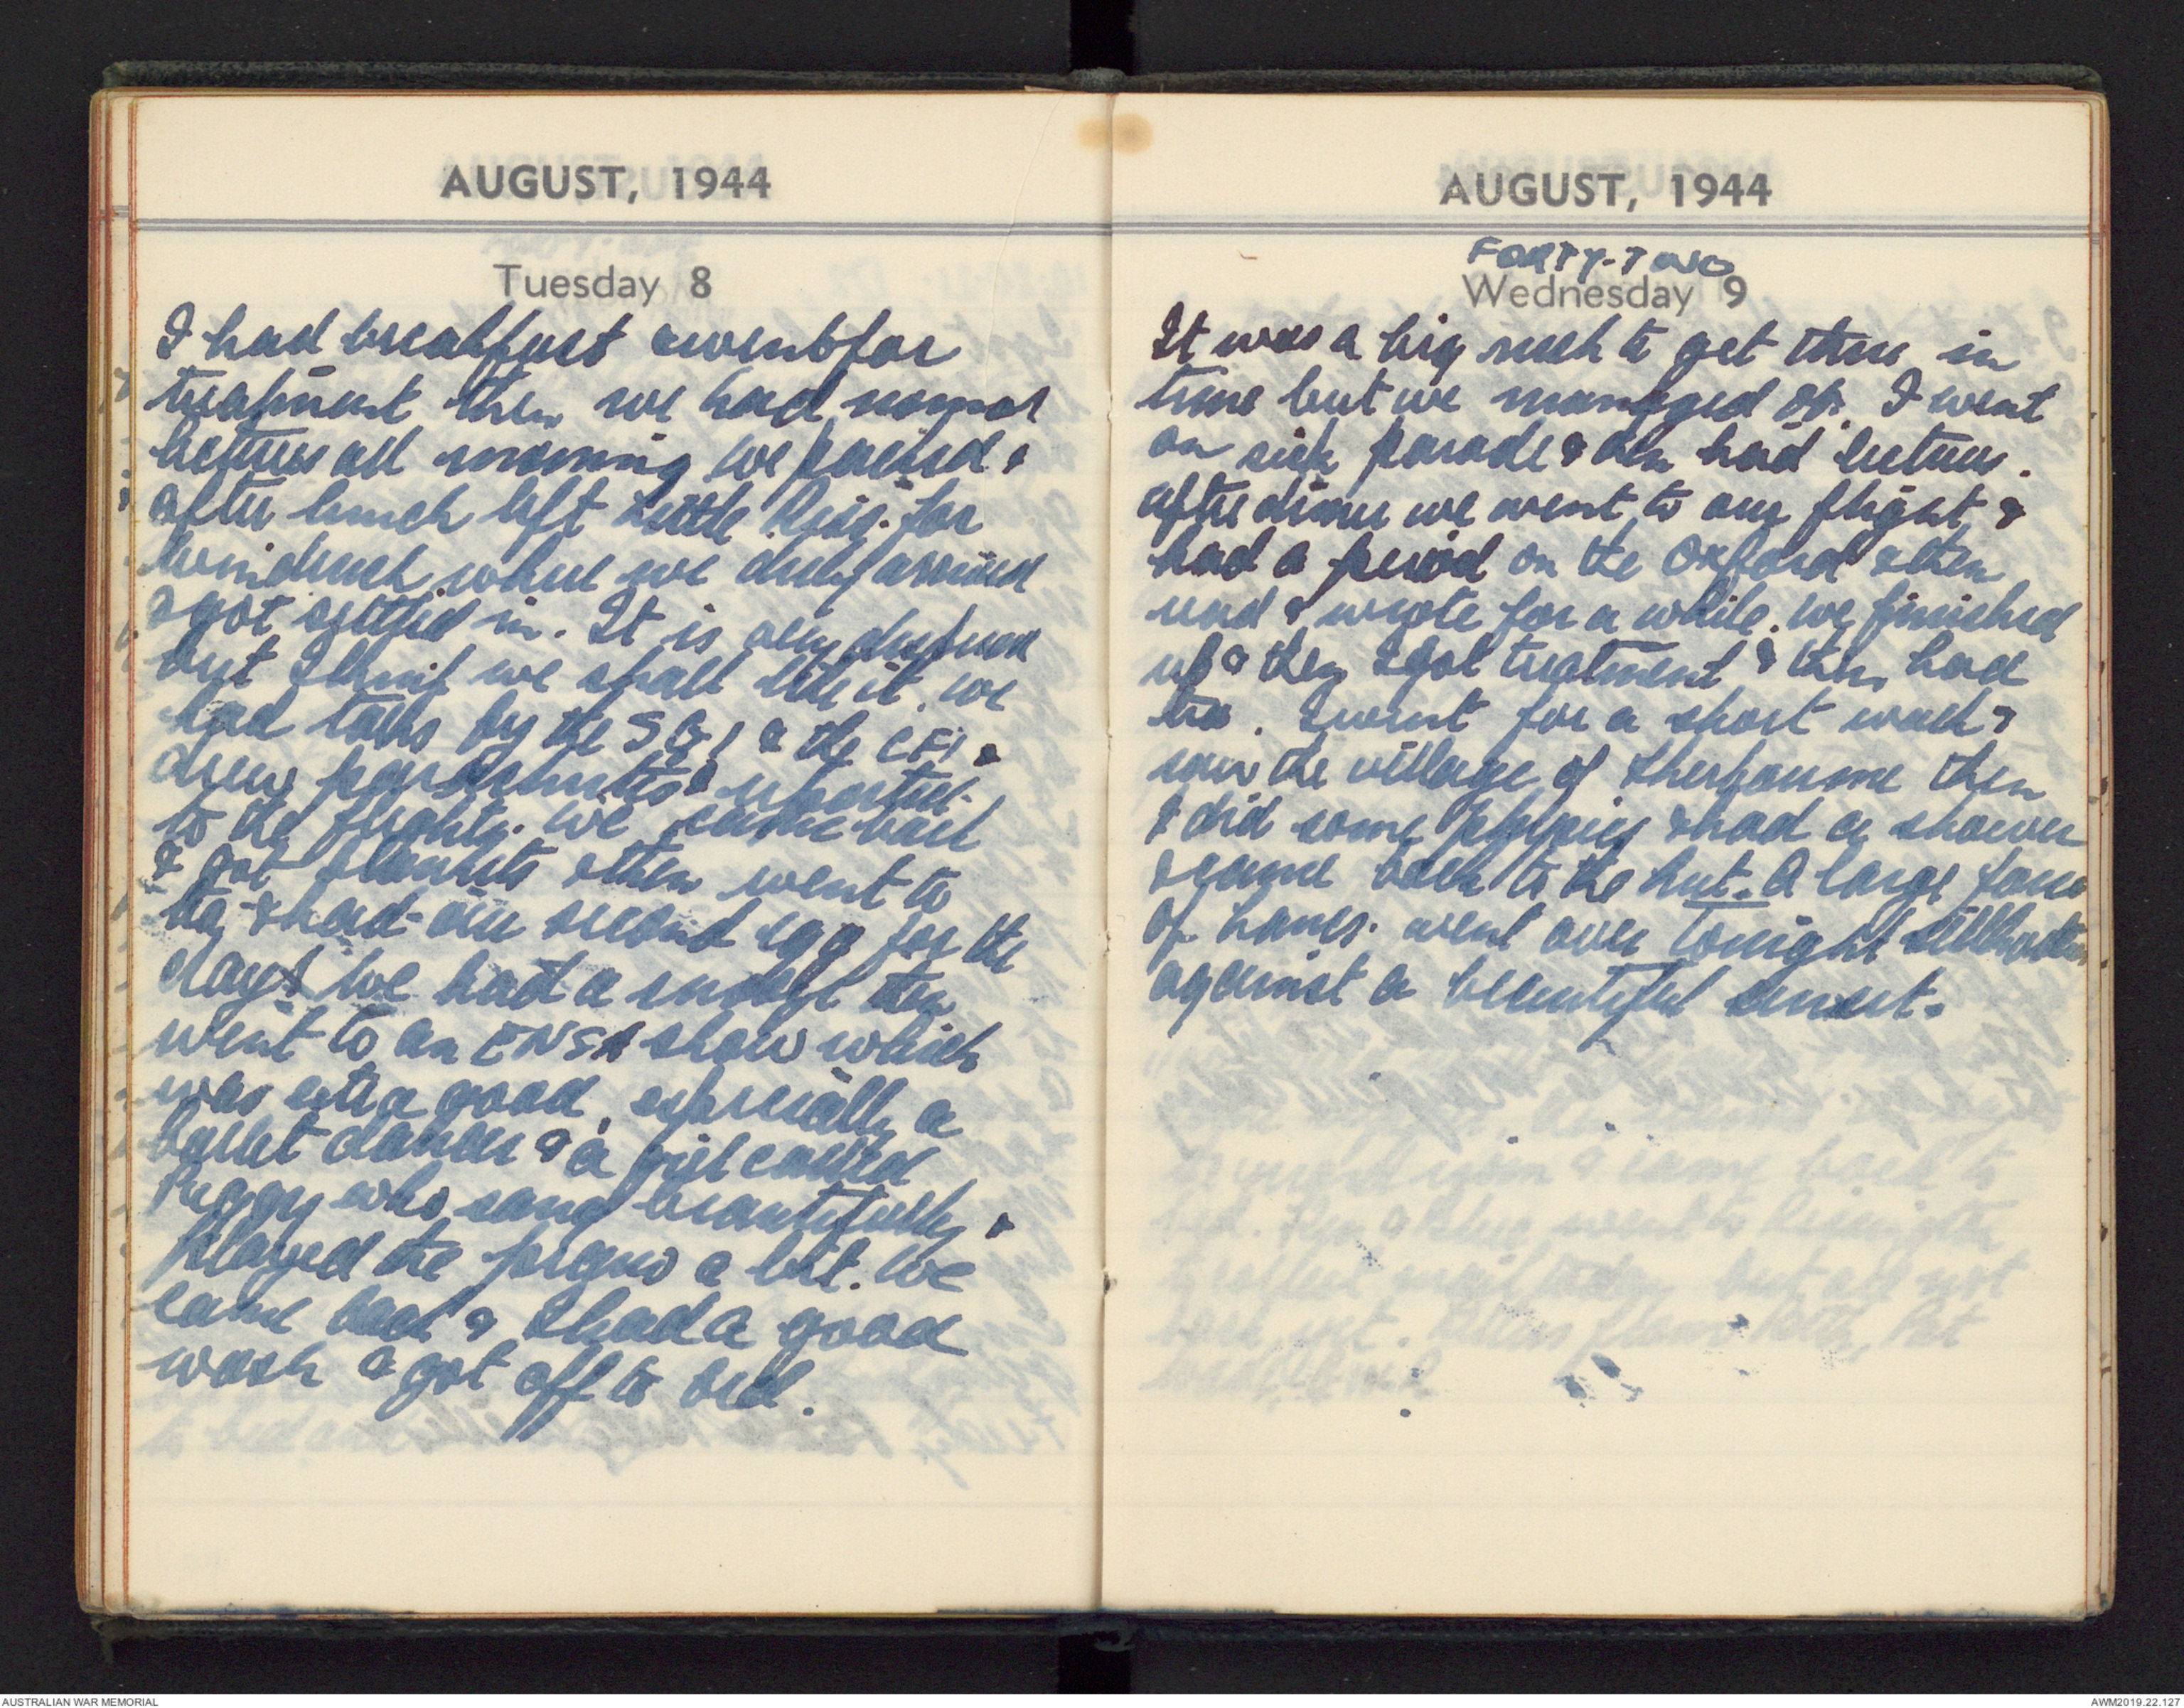 AUGUST, 1944
Tuesday 8
I had breakfast & went for
treatment then we had normal
lectures all morning we packed &
after lunch left Little Riss. for
Windrush where we duly arrived
& got settled in. It is very dispersed
but I think we shall like it. We
had talks by the SGI & the CFI &
drew parachutes & reported
to the flights. We came back
& got blankets & then went to
tea & had our second egg for the
day! We had a then
went to an ENSA show which
was extra good, especially a
ballet dancer & a girl called
Peggy who sang beautifully &
played the piano a bit. We
came back & I had a good
wash & got off to bed.
AUGUST, 1944
FORTY-TWO
Wednesday 9
It was a big rush to get there in
time but we managed ok. I went
on sick parade & then had lectures.
After dinner we went to our flight &
had a period on the Oxford & then
read & wrote for a while. We finished
up & then I got treatment & then had
tea. I went for a short walk &
saw the village of Sherbourne then
I did some & had a shower
& came back to the hut. A large force
of Lancs. went over tonight silhouetted
against a beautiful sunset.
AUSTRALIAN WAR MEMORIAL
AWM2019.22.127